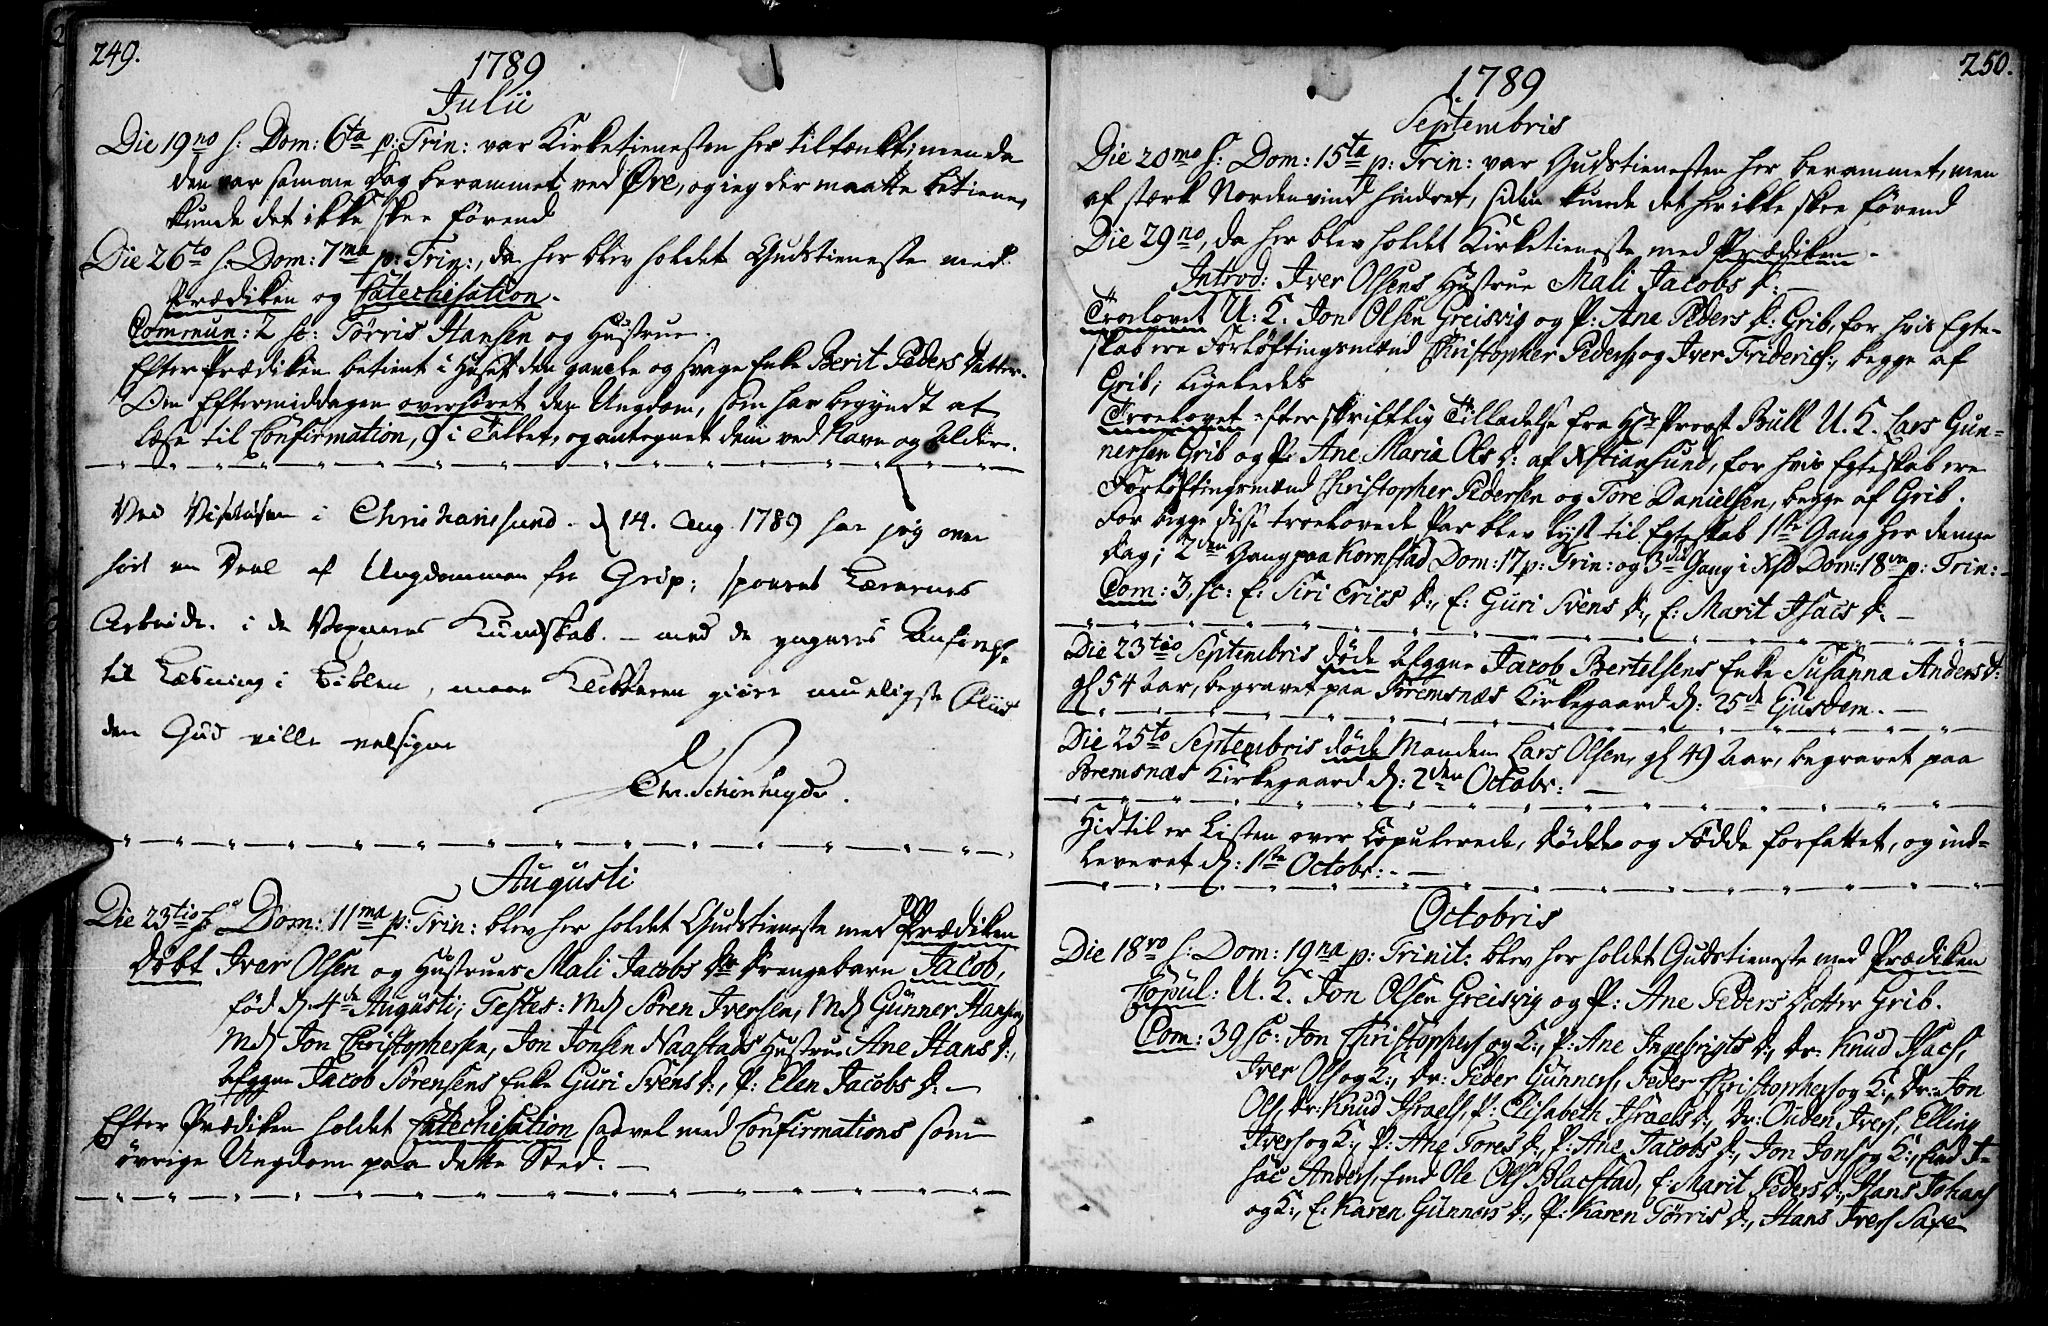 249.
1789
Julii
Die 19no h: Dom: 6ta p: Trin: var Kirketienesten her tiltænkt; men da
den var samme Dag berammet ved Øre, og ieg der maatte betiene,
kunde det ikke skee førend
Die 26to h: Dom: 7ma p: Trin:, da her blev holdet Gudstieneste med
Prædiken og Catechisation.
Commun: 2 st: Tørris Hansen og Hustrue.
Efter Prædiken betient i Huset den gamle og svage Enke Berit Peders Datter.
Om Eftermiddagen overhøret den Ungdom, som har begyndt at
læse til Confirmation, 9 i Tallet, og antegnet dem ved Navn og Alder.
Ved Visitatsen i Christiansund d 14. Aug 1789 har jeg over
hørt en Deel af Ungdommen fra Grip; sporet Lærernes
Arbeide i de Voxnes Kundskab. - med de yngres
til Læsning i Biblen, maae Klokkeren giøre mueligste Fliid
den Gud ville velsigne
Chr. Schønheyder.
Augusti
Die 23tio h: Dom: 11ma p: Trin: blev her holdet Gudstieneste med Prædiken
Døbt Iver Olsen og Hustrues Mali Jacobs Dr Drengebarn Jacob,
fød d. 4de Augusti; Testes: Md Søren Iversen, Md Gunner Hansen,
Md Jon Christophersen, Jon Jonsen Naastads Hustrue Ane Hans D:,
afggne Jacob Sørensens Enke Guri Svens D:, P: Elen Jacobs D: -
Efter Prædiken holdet Catechisation saavel med Confirmations som
øvrige Ungdom paa dette Sted. -
250.
1789
Septembris
Die 20mo h: Dom: 15ta p: Trin: var Gudstienesten her berammet, men
af stærk Nordenvind hindret, siden kunde det her ikke skee førend
Die 29no, da her blev holdet Kirketieneste med Prædiken.
Introd: Iver Olsens Hustrue Mali Jacobs D: -
Troelovet U: K. Jon Olsen Greisvig og P: Ane Peders D: Grib, for hvis Egte-
skab ere Forløftingsmænd Christopher Peders: og Iver Friderichs:, begge af
Grib; ligeledes
Troelovet efter skriftlig Tilladelse fra Hr Provst Bull U. K. Lars Gun-
nersen Grib og P: Ane Maria Ols D: af Xstiansund, for hvis Egteskab ere
Forløftingsmænd Christopher Pedersen og Tore Danielsen, begge af Grib.
For begge disse troelovede Par blev lyst til Egteskab 1ste Gang her denne
Dag; 2den Gang paa Kornstad Dom: 17 p: Trin: og 3die Gang i Xsd Dom: 18va p: Trin: -
Com: 3 st: E: Siri Erics D:, E: Guri Svens D:, E: Marit Isacs D: -
Die 23tio Septembris døde afggne Jacob Bertelsens Enke Susanna Anders D:
gl 54 Aar, begravet paa Bremsnæs Kirkegaard d: 25de Ejusdem. -
Die 25to Septembris døde Manden Lars Olsen, gl 49 Aar, begravet paa
Bremsnæs Kirkegaard d: 2den Octobr: -
Hidtil er Listen over Copulerede, Dødde og Fødde forfattet, og ind-
leveret d: 1ste Octobr: -
Octobris
Die 18vo h: Dom: 19na p: Trinit: blev her holdet Gudstieneste med Prædiken
Copul: U. K. Jon Olsen Greisvig og P: Ane Peders Datter Grib.
Com: 39 st: Jon Christophers og K:, P: Ane Ingebrigts D:, Dr: Knud Isacs,
Iver Ols og K:, Dr: Peder Gunners, Peder Christophers og K:, Dr: Jon
Ols, Dr: Knud Israels, P: Elisabeth Israels D:, Dr: Ouden Ivers, Elling
Ivers og K:, P: Ane Tores D:, P: Ane Jacobs D:, Jon Jons og K:, Emd I-
sac Anders, Emd Ole Ols Blacstad, E: Marit Peders D:, Hans Johans
og K:, E: Karen Gunners D:, P: Karen Tørris D:, Hans Ivers Saxe